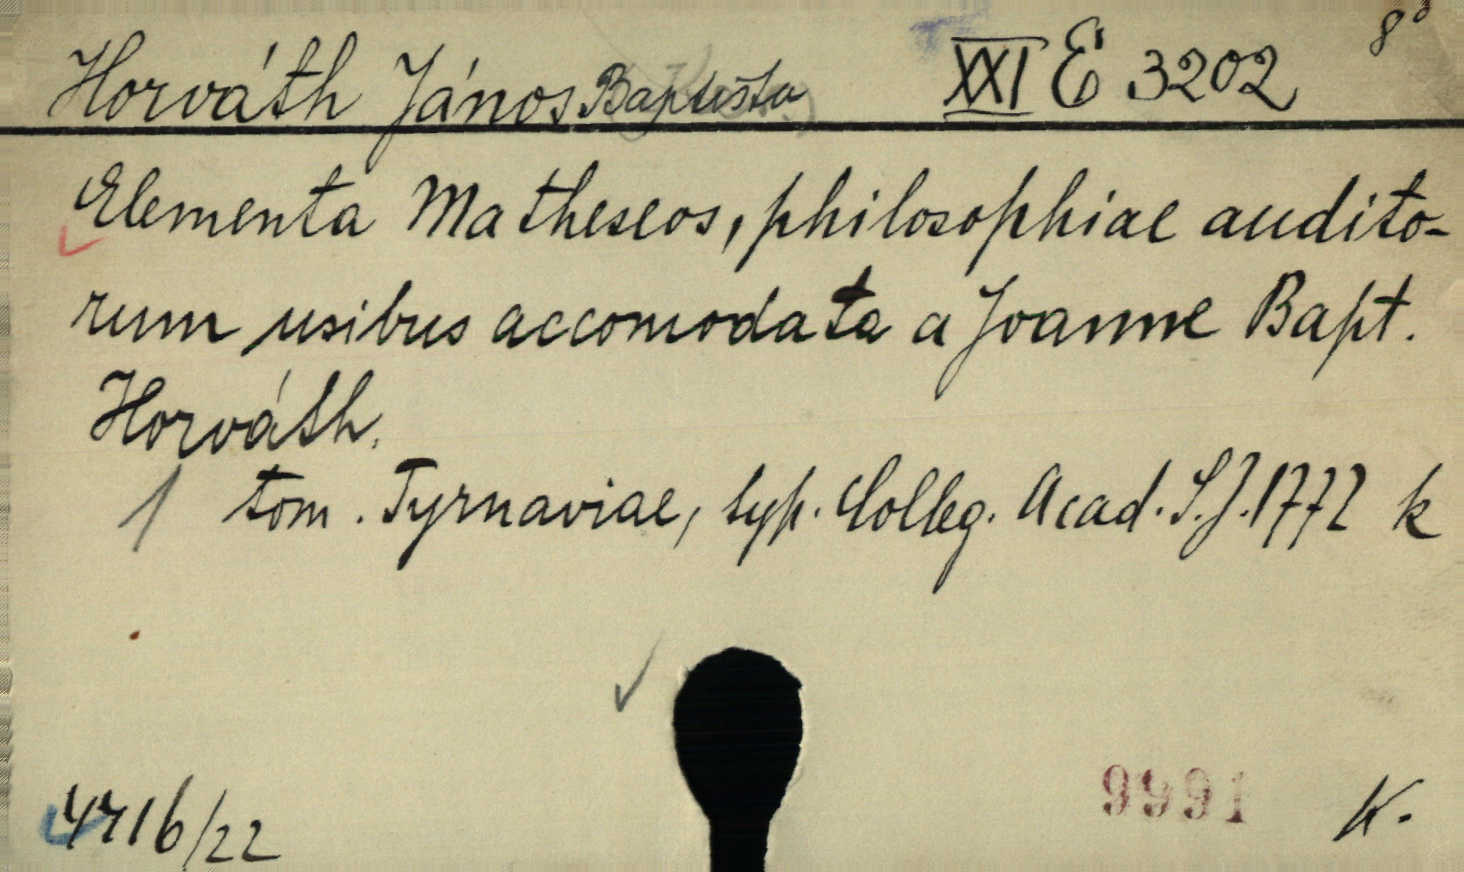 8°
Horváth János Baptista XXI É 3202
Elementa Matheseos, philosophiae audito-
rum usibus accomodata a Joanne Bapt.
Horváth.
1 tom. Tyrnaviae, typ. Colleg. Acad. S.J. 1772 k
9991
4716/22 K.